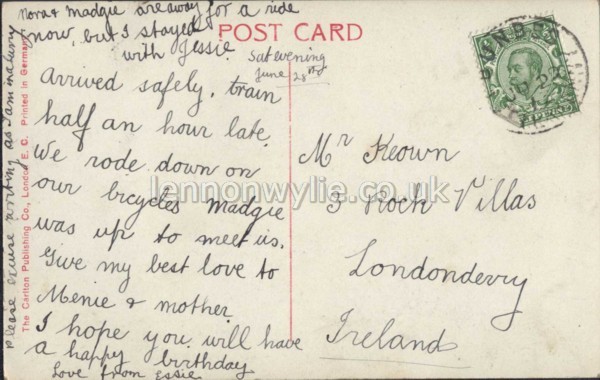 Nora & Madgie are away for a ride
now, but I stayed
with Jessie.
POST CARD
Sat evening
June 28th
Arrived safely, train
half an hour late.
We rode down on
our bicycles Madgie
was up to meet us.
Give my best love to
Menie & mother
I hope you will have
a happy birthday
Love from Essie
please excuse writing as I am in a hurry
The Carlton Publishing Co., London, E. C. Printed in Germany.
Mr Keown
3 Rock Villas
Londonderry
Ireland
lennonwylie.co.uk